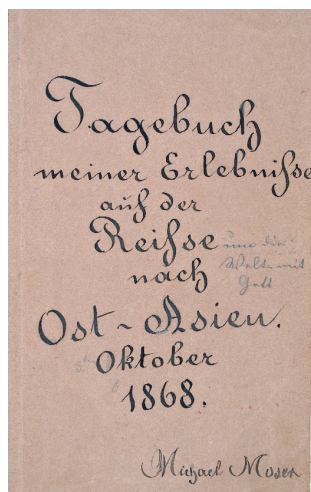 Tagebuch
meiner Erlebniſse
auf der
Reiſse um die
Welt mit
nach Gott
Ost-Asien.
Oktober
1868.
Michael Moser